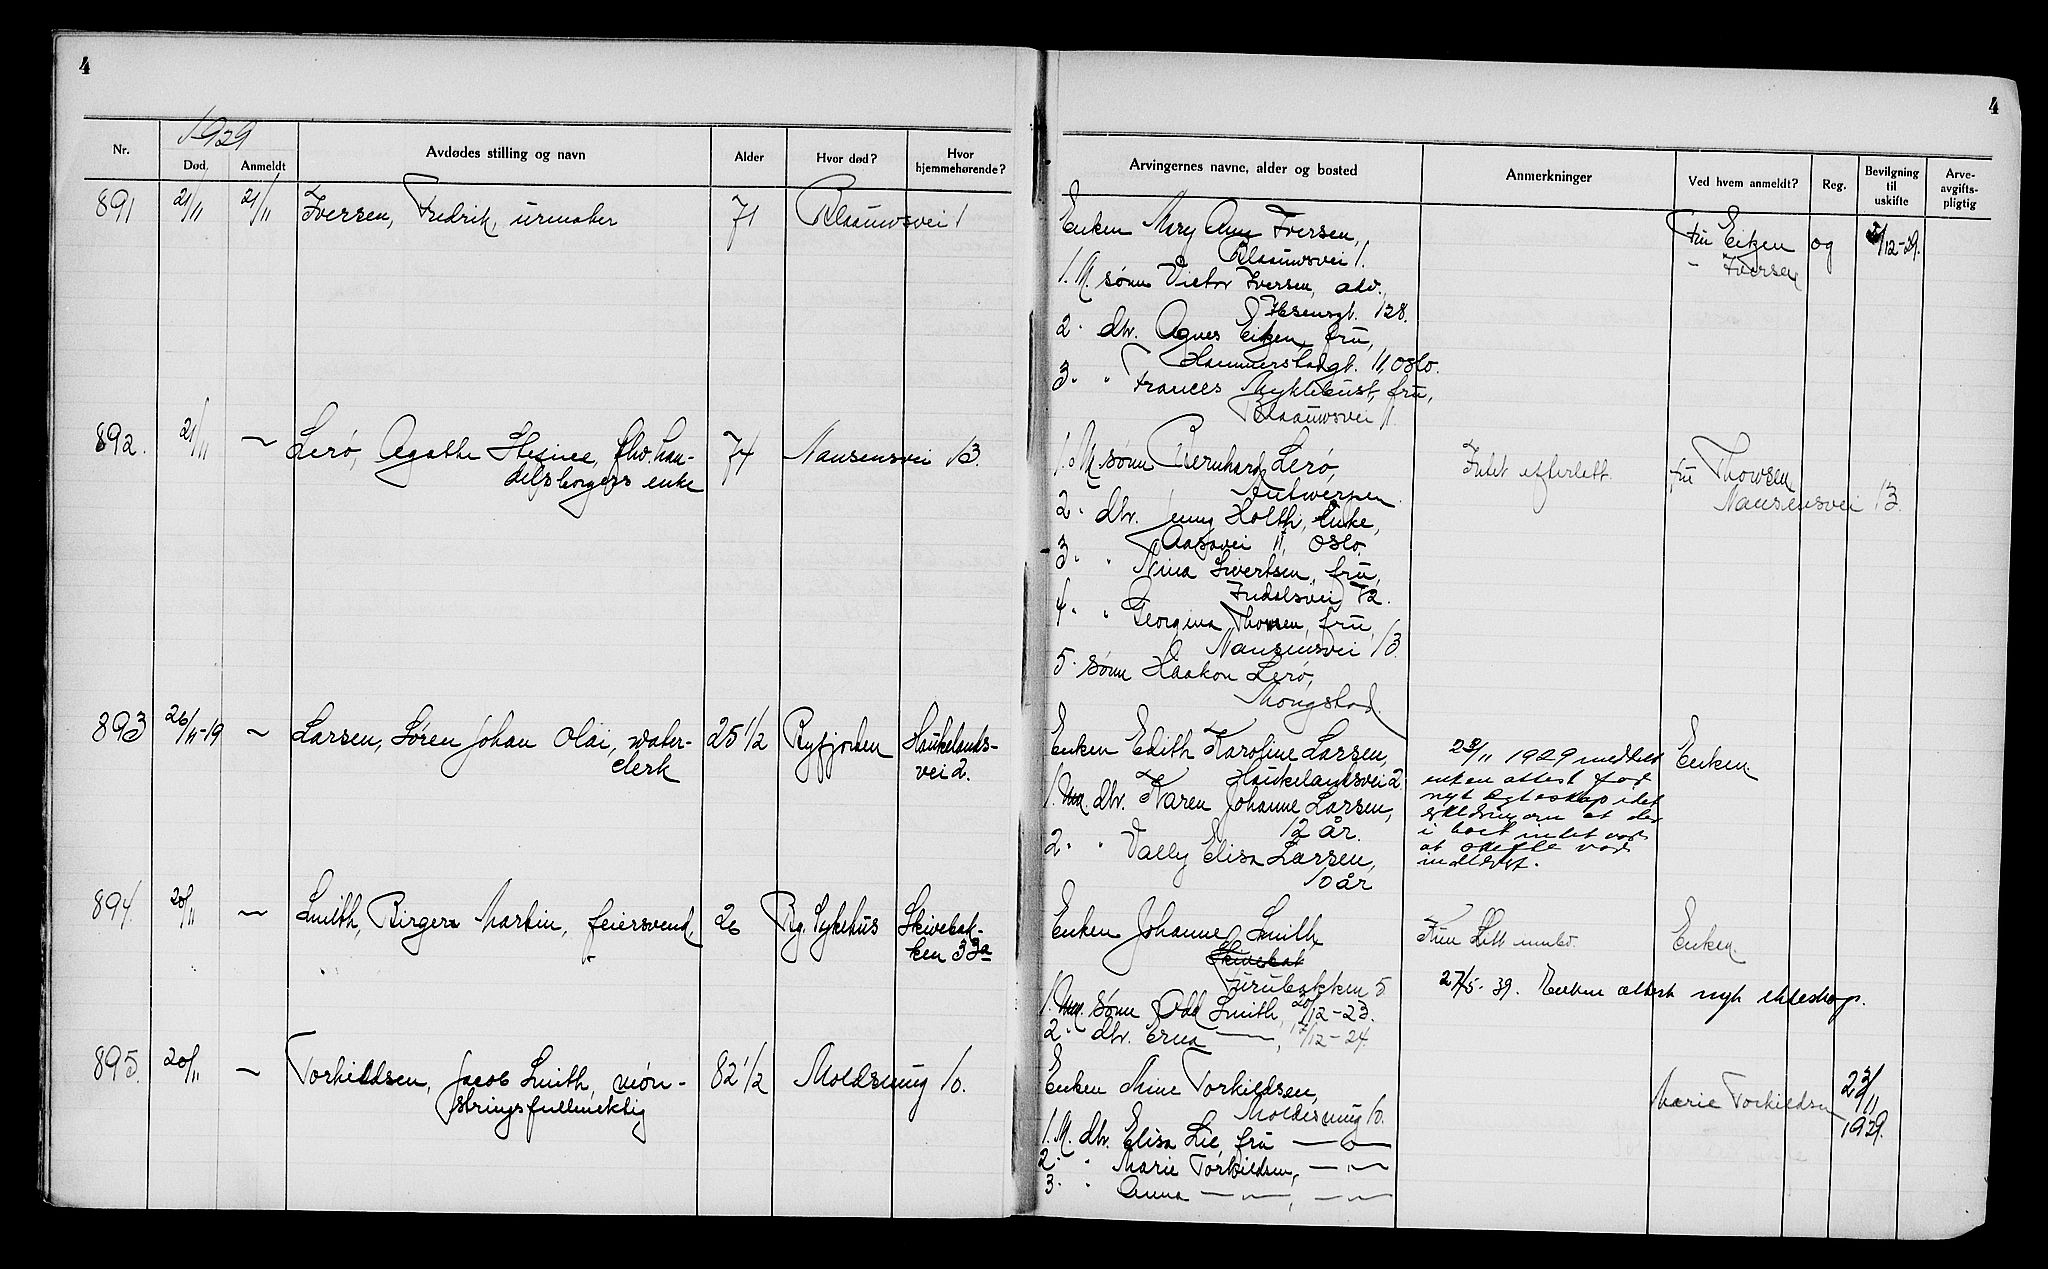 4
4
1929
Nr.
Død.
Anmeldt
Avdødes stilling og navn
Alder
Hvor død?
Hvor
hjemmehørende?
Arvingernes navne, alder og bosted
Anmerkninger
Ved hvem anmeldt?
Reg.
Bevilgning
til
uskifte
Arve-
avgifts-
pligtig
891 21/11 21/11 Iversen, Fredrik, urmaker 71 Blaauwsvei 1
Enken Mary Ann Iversen,
Blaauwsvei 1.
1. M. sønn Victor Iversen, adv.,
Ibsensgt. 128.
2. dtr. Agnes Eiken, fru,
Hammerstadgt. 11, Oslo.
3. " Frances Myklebust, fru,
Blaauwsvei 1.
Fru Eiken og
" Iversen
/12-29.
892. 21/11 — Lerø, Agathe fhv. han-
delsborgers enke
74 Nansensvei 13.
1. M sønn Bernhard Lerø,
Antwerpen
2. dtr. Jenny Holth, Enke,
Aasavei 11, Oslo.
3. " Nina Sivertsen, fru,
Indalsvei 72.
4. " Georgina Thowsen, fru,
Nansensvei 13
5. sønn Haakon Lerø,
Mongstad.
Intet efterlatt.
fru Thowsen
Nansensvei 13.
893 26/11-19 — Larsen, Søren Johan Olai, water-
clerk
25 1/2 Byfjorden Haukelands-
vei 2.
Enken Edith Karoline Larsen,
Haukelandsvei 2.
1. dtr. Karen Johanne Larsen,
12 år.
2. " Vally Elisa Larsen,
10 år
/11 1929 meddelt
enken attest for
nyt egteskap idet
at der
i boet intet var
at skifte var
Enken.
894. 20/11 — Smith, Birger Martin, feiersvend, 26 Bg. Sykehus Skivebak-
ken 33a
Enken Johanne Smith,
Skivebak
Furubakken 5
1. sønn Odd Smith, 20/12-23.
2. dtr. Erna — , 17/12-24.
Enken.
27/5-39. Enken attest nyt ekteskap.
895. 20/11 — Torkildsen, Jacob Smith, møn-
stringsfullmektig
82 1/2 Moldesmug 10.
Enken Mine Torkildsen,
Moldesmug 10.
1. M. dtr. Elisa Lie, fru — " —
2. " Marie Torkildsen, — " —
3. " Anna — " — , — " —
Marie Torkildsen
23/11
1929.